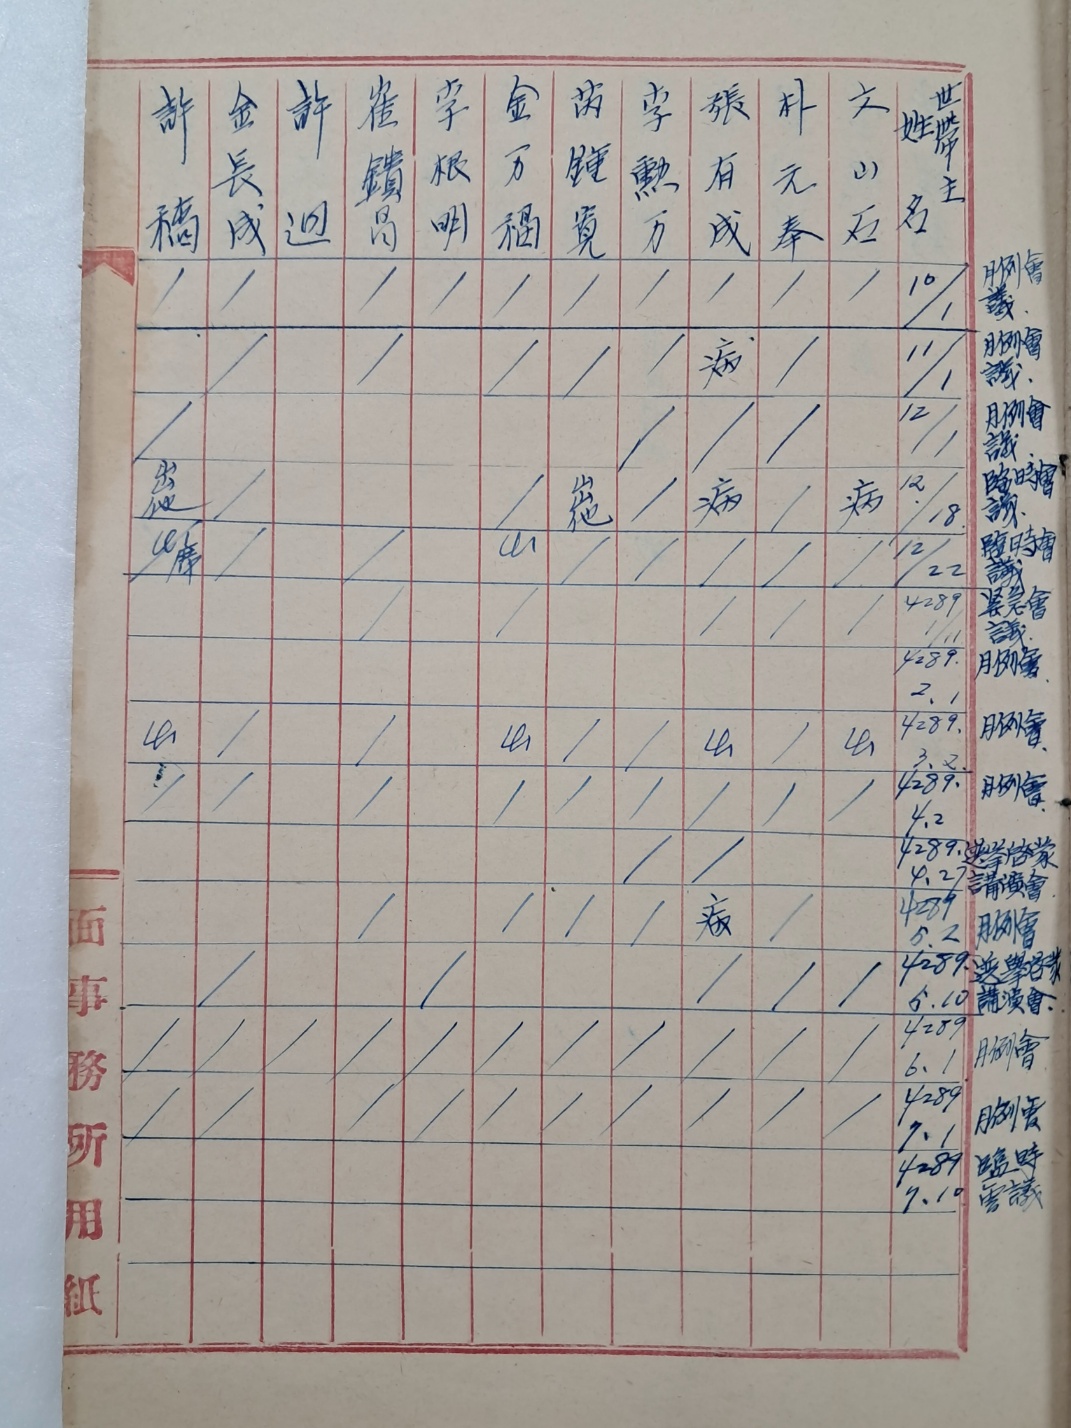 世帶主
姓名
文山石
朴元奉
張有成
李勲万
芮鍾寛
金万福
李根明
崔鑽昌
許迥
金長成
許穚
10/1 月例會議.
/ / / / / / / / / / /
11/1 月例會議.
/ 病 / / / / / /
12/1 月例會議.
/ / / /
12/18 臨時會議.
病 / 病 / 出他 / / 出他
12/22 臨時會議
/ / / / / 出 / /
4289 1/11 緊急會議.
/ / / / /
4289. 2.1 月例會.
4289. 3.2 月例會.
出 / 出 / / 出 / / 出
4289. 4.2 月例會.
/ / / / / / / / /
4289. 4.27 選挙啓蒙講演會.
/ /
4289 5.2 月例會
/ 病 / / / /
4289. 5.10 選擧啓蒙講演會.
/ / / / /
4289 6.1 月例會
/ / / / / / / / / / /
4289 7.1 月例會
/ / / / / / / / / /
4289 7.10 臨時會議
面事務所用紙